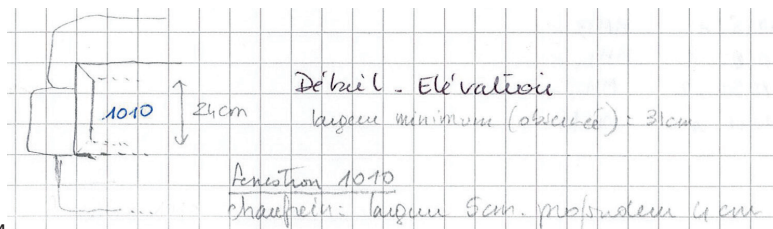 Détail - Elévation
1010
24cm
largeur minimum (observée) : 31cm
fenestron 1010
chanfrein : largeur 5cm. profondeur 4 cm